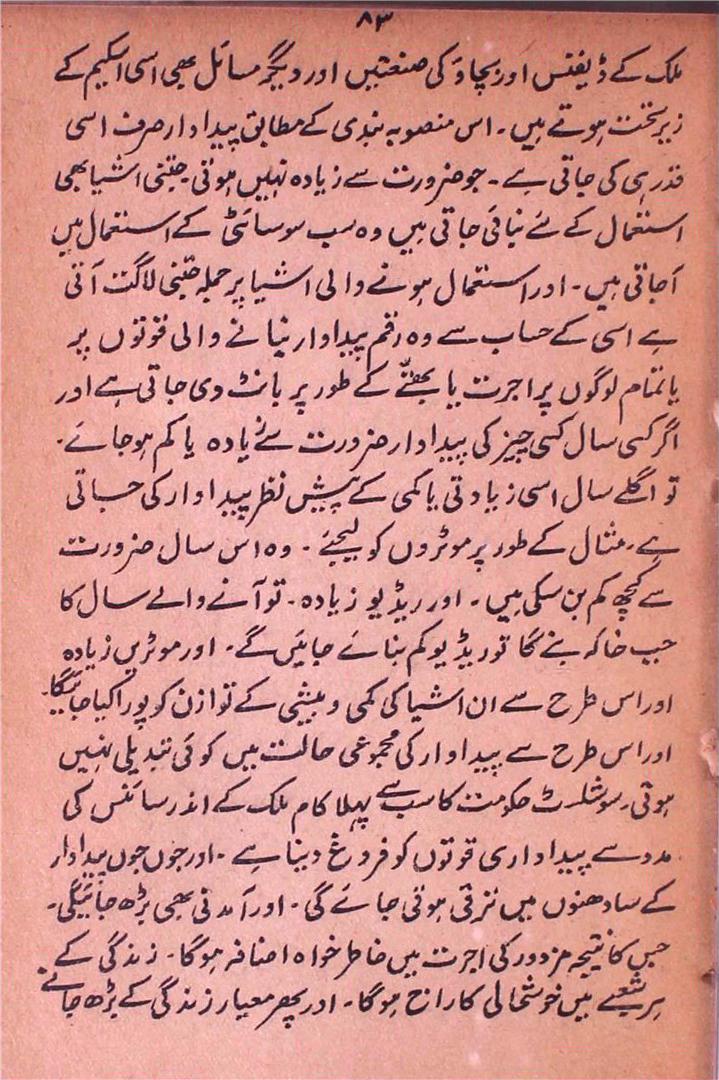 ۸۳
ملک کے ڈیفنس اور بچاؤ کی صنعتیں اور دیگر مسائل بھی اسی اسکیم کے
زیر تحت ہوتے ہیں۔ اس منصوبہ بندی کے مطابق پیداوار صرف اسی
قدر ہی کی جاتی ہے۔ جو ضرورت سے زیادہ نہیں ہوتی۔ جتنی اشیا بھی
استعمال کے لئے بنائی جاتی ہیں وہ سب سوسائٹی کے استعمال میں
آجاتی ہیں۔ اور استعمال ہونے والی اشیا پر جملہ جتنی لاگت آتی
ہے اسی کے حساب سے وہ رقم پیداوار بنانے والی قوتوں پر
یا تمام لوگوں پر اجرت یا بھتّے کے طور پر بانٹ دی جاتی ہے اور
اگر کسی سال کسی چیز کی پیداوار ضرورت سے زیادہ یا کم ہو جائے۔
تو اگلے سال اسی زیادتی یا کمی کے پیش نظر پیداوار کی جاتی
ہے۔ مثال کے طور پر موٹروں کو لیجئے۔ وہ اس سال ضرورت
سے کچھ کم بن سکی ہیں۔ اور ریڈیو زیادہ۔ تو آنے والے سال کا
جب خاکہ بنے گا تو ریڈیو کم بنائے جائیں گے۔ اور موٹریں زیادہ
اور اس طرح سے ان اشیا کی کمی و بیشی کے توازن کو پورا کیا جائیگا۔
اور اس طرح سے پیداوار کی مجموعی حالت میں کوئی تبدیلی نہیں
ہوتی۔ سوشلسٹ حکومت کا سب سے پہلا کام ملک کے اندر سائنس کی
مدد سے پیداواری قوتوں کو فروغ دینا ہے۔ اور جوں جوں پیداوار
کے سادھنوں میں ترقی ہوتی جائے گی۔ اور آمدنی بھی بڑھ جائیگی۔
جس کا نتیجہ مزدور کی اجرت میں خاطر خواہ اضافہ ہوگا۔ زندگی کے
ہر شعبے میں خوشحالی کا راج ہوگا۔ اور پھر معیار زندگی کے بڑھ جانے